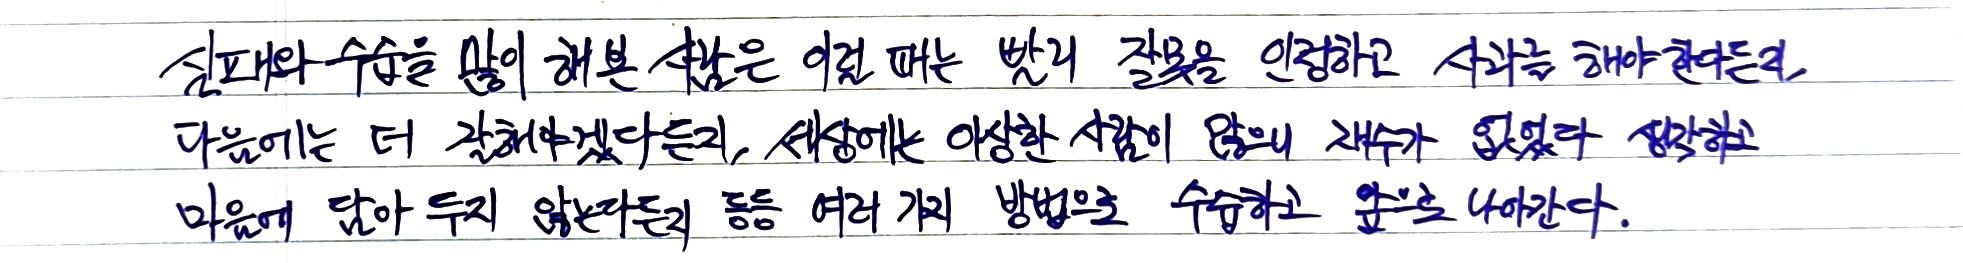 실패와 수습을 많이 해본 사람은 이럴 때는 빨리 잘못을 인정하고 사과를 해야 한다든지,
다음에는 더 잘해야겠다든지, 세상에는 이상한 사람이 많으니 재수가 없었다 생각하고
마음에 담아 두지 않는다든지 등등 여러 가지 방법으로 수습하고 앞으로 나아간다.